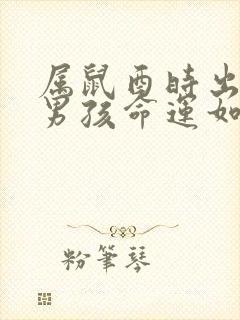 属鼠酉時出
男孩命運如
粉筆琴